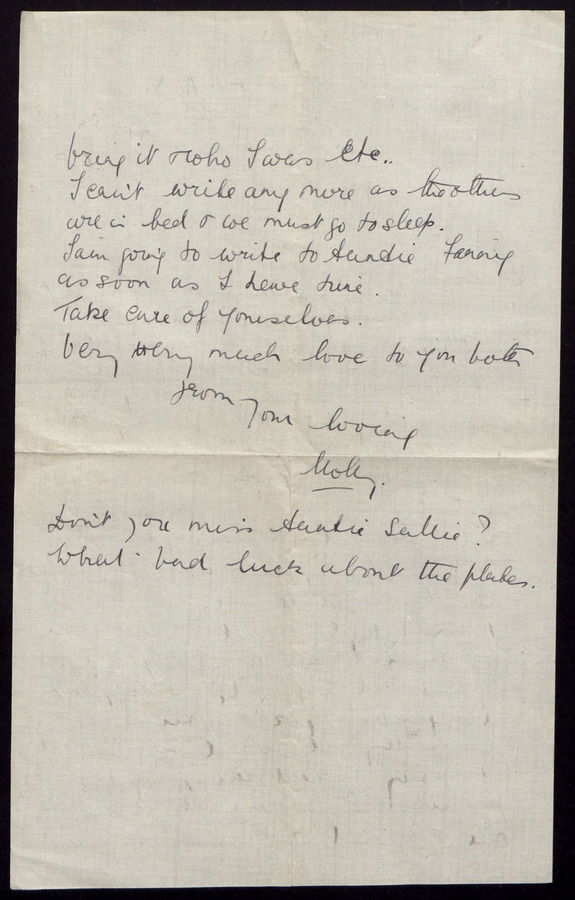 bring it & who I was etc..
I can't write any more as the others
are in bed & we must go to sleep.
I am going to write to Auntie Fanny
as soon as I have time.
Take care of yourselves.
Very very much love to you both
from your loving
Molly.
Don't you miss Auntie Sallie?
What bad luck about the plates.